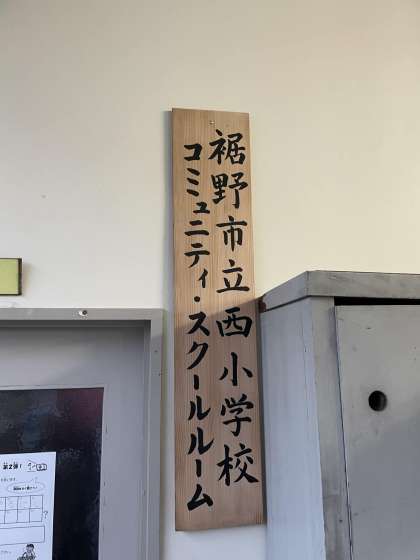 裾野市立西小学校
コミュニティ・スクールルーム
第2弾!